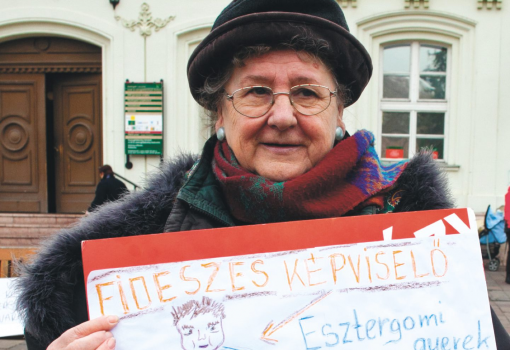 FIDESZES KÉPVISELŐ
Esztergomi
gyerek